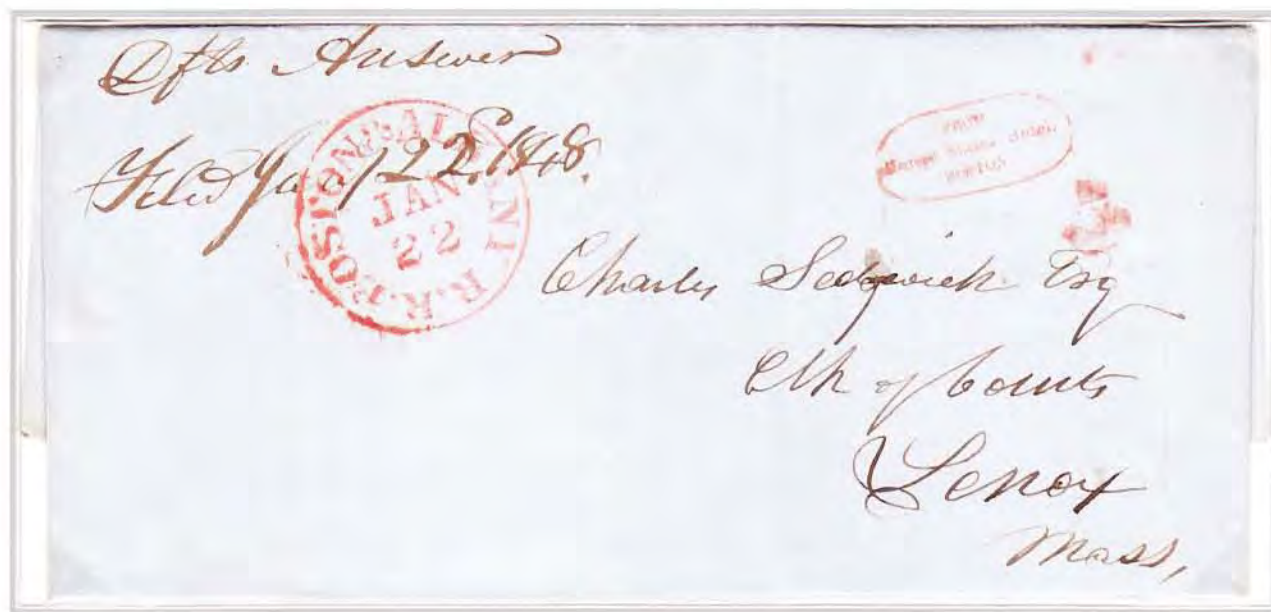 Dfts Answer
Filed Jany 22d 1848.
BOSTON & ALBANY R.R.
JAN
22
FROM
United States Hotel,
BOSTON
Charles Sedgwick Esq
Clk of Courts
Lenox
Mass,